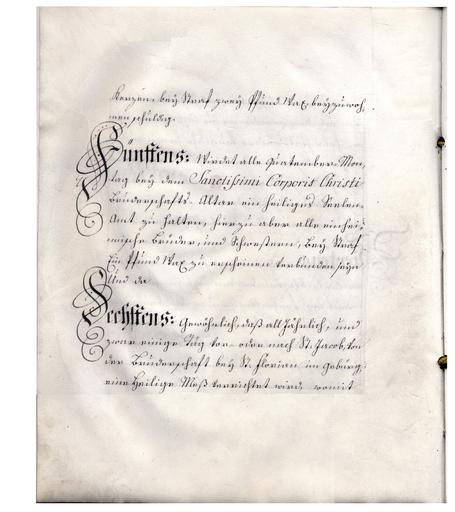 Kerzen, bey Straf zwey Pfund Wax beyzuwoh,
nen schuldig.
Fünfftens: Wirdet alle Quatember-Mon,
tag bey dem Sanctissimi Corporis Christi
Bruderschafts-Altar ein heiliges Seelen
Amt zu halten, hierzu aber alle einhei,
mische Brüder, und Schwestern, bey Straf
Ein Pfund Wax zu erscheinen verbunden seyn
Und da
Sechstens: Gewöhnlich, daß all Jährlich, und
zwar einige Täg vor- oder nach St. Jacob, von
der Bruderschaft bey St. Florian im Gebürg,
eine Heilige Meß verrichtet wird, womit